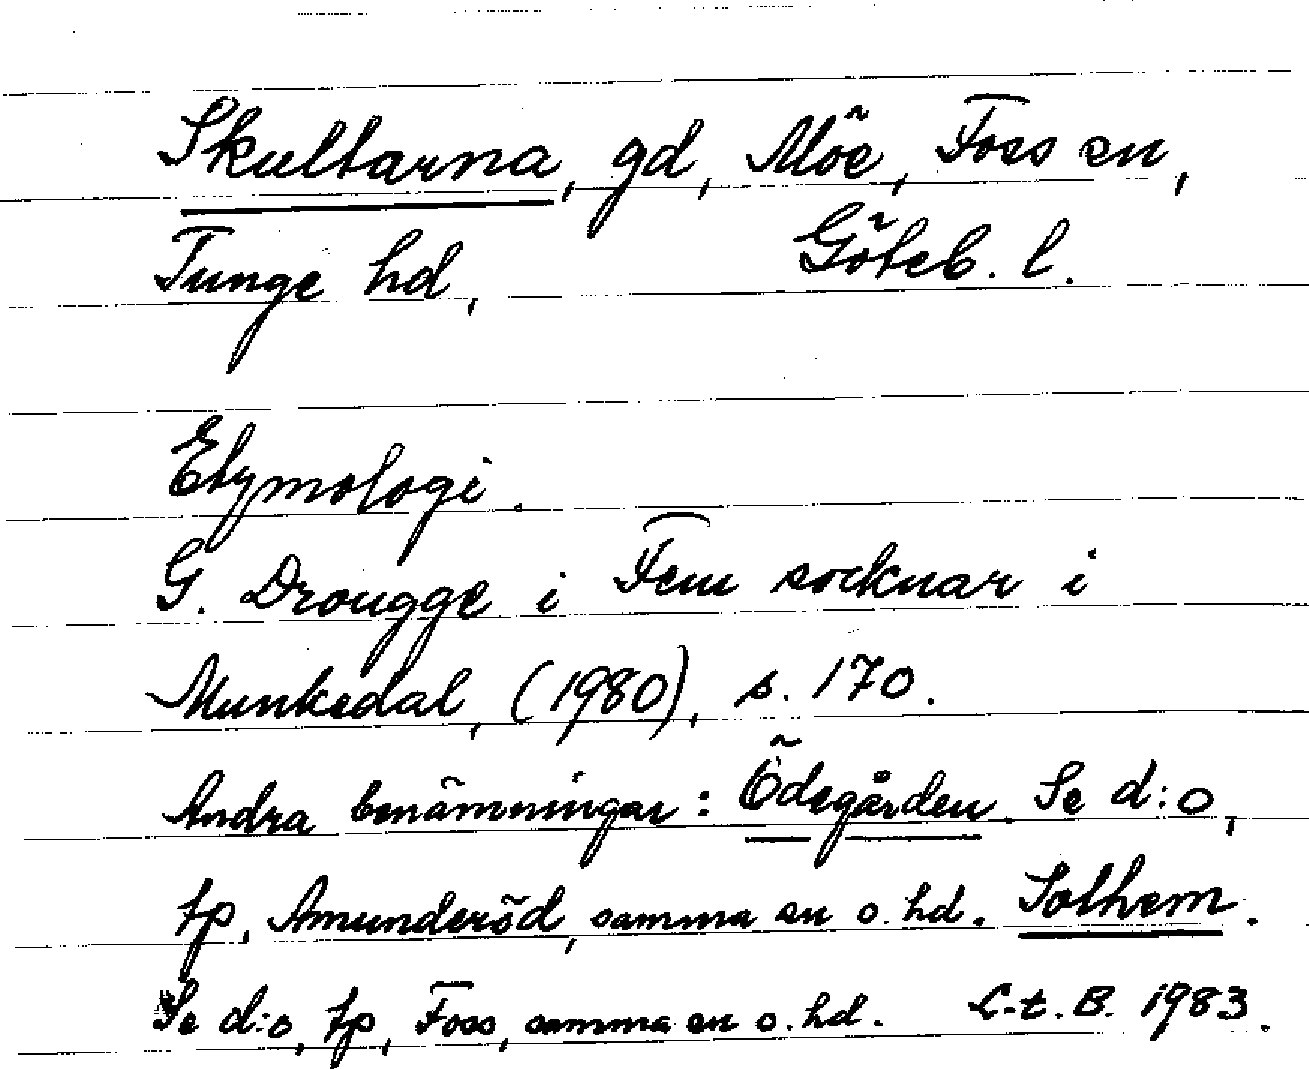 Skultarna, gd, Möe, Foss sn,
Tunge hd, Göteb. l.
Etymologi.
G. Drougge i Fem socknar i
Munkedal, (1980), s. 170.
Andra benämningar: Ödegården. Se d:o,
tp, Amunderöd, samma sn o. hd. Solhem.
Se d:o, tp, Foss, samma sn o. hd. L-t. B. 1983.